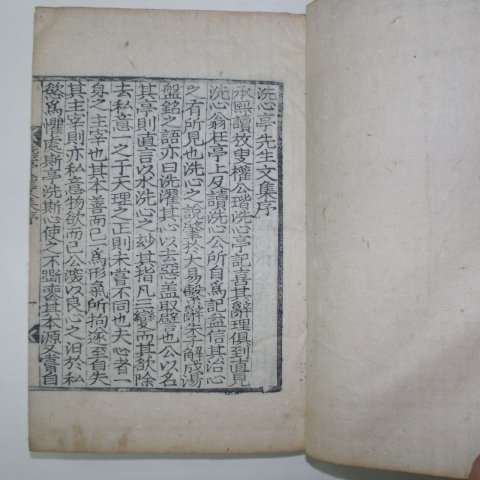 洗心亭先生文集序
承熙讀放叟權公瑎洗心亭記喜其辭理俱到直見
洗心翁在亭上及讀洗心公所自爲記益信其治心
之有所見也洗心之說肇於大易繫辭朱子解成湯
盤銘之語亦曰洗濯其心以去惡盖取譬也公以名
其亭則直言以水洗心之妙其指凡三變而其欲除
去私意一之于天理之正則未嘗不同也夫心者一
身之主宰也其本善而已一爲形氣所拘遂至自失
其主宰則亦私意物欲而已公淡以良心之汨於私
慾爲懼處斯亭洗斯心使之不斵喪其本源入嘗自